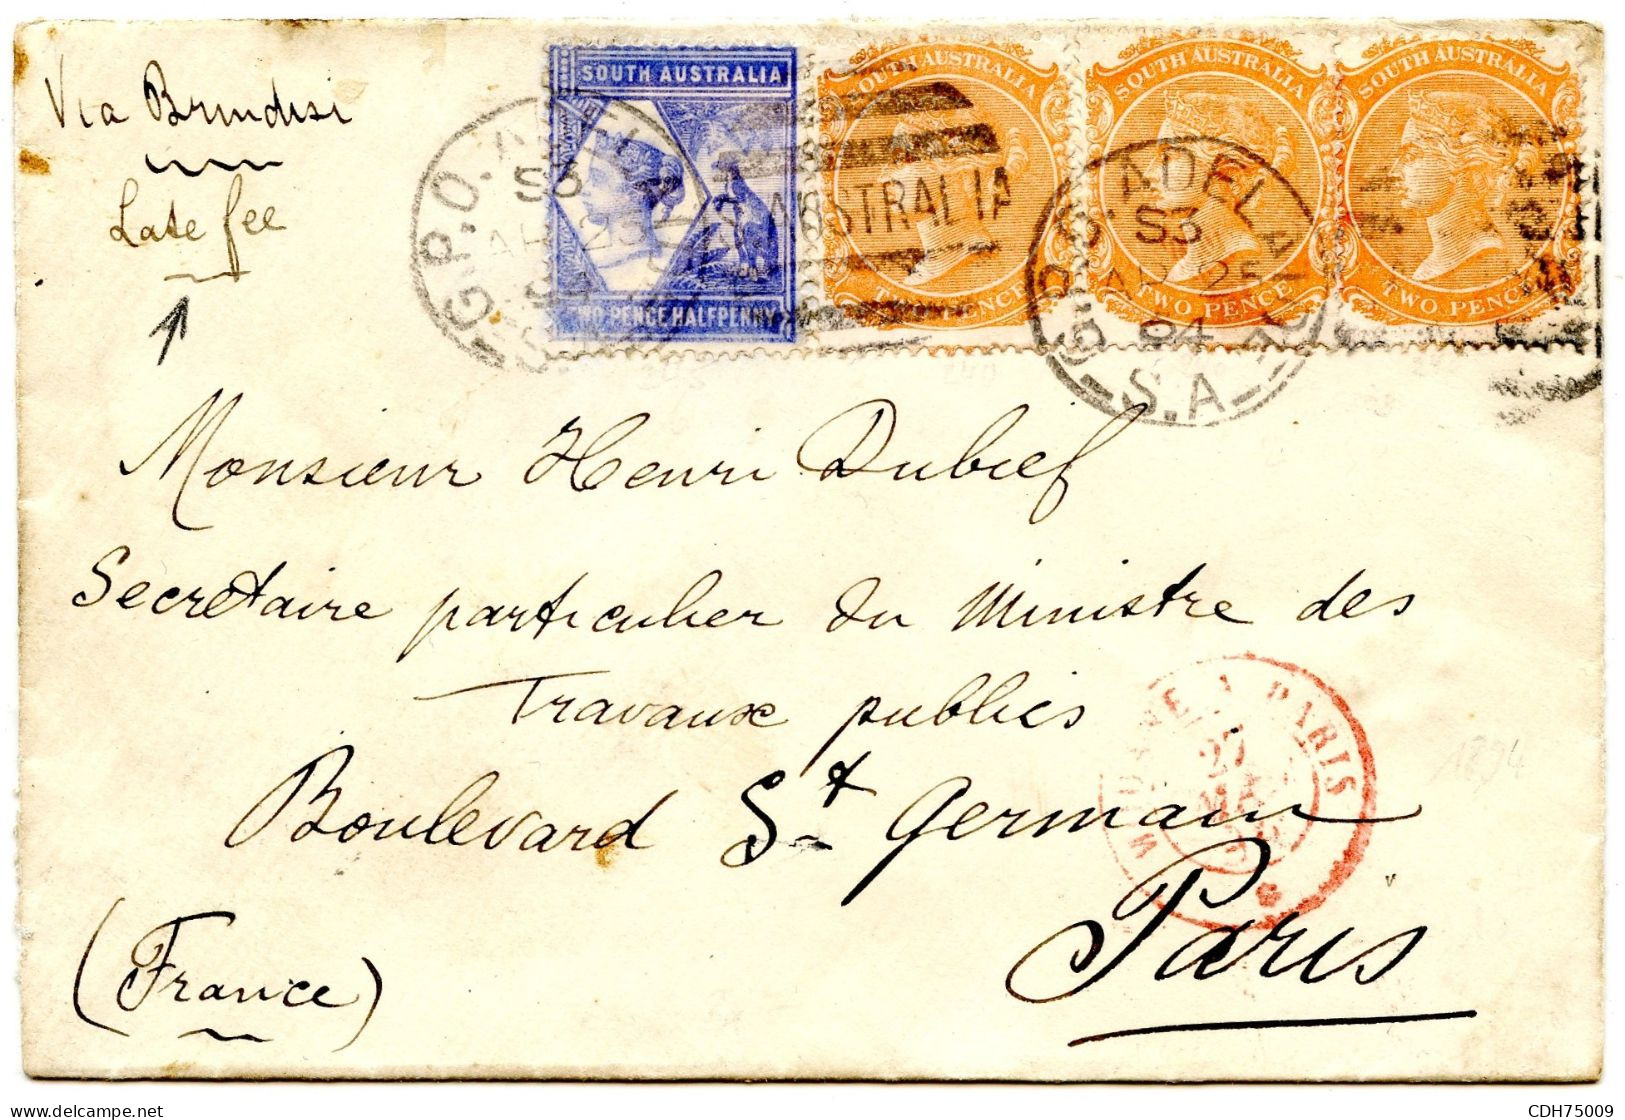 Via Brindisi
Late fee
SOUTH AUSTRALIA
TWO PENCE HALFPENNY
SOUTH AUSTRALIA
TWO PENCE
SOUTH AUSTRALIA
TWO PENCE
SOUTH AUSTRALIA
TWO PENCE
G.P.O. ADELAIDE
S3
94
AUSTRALIA
G.P.O. ADELAIDE
S3
94
S.A
Monsieur Henri Dubief
Secretaire particulier du Ministre des
Travaux publics
Boulevard St Germain
Paris
(France)
MODANE A PARIS
27
1894
CDH75009